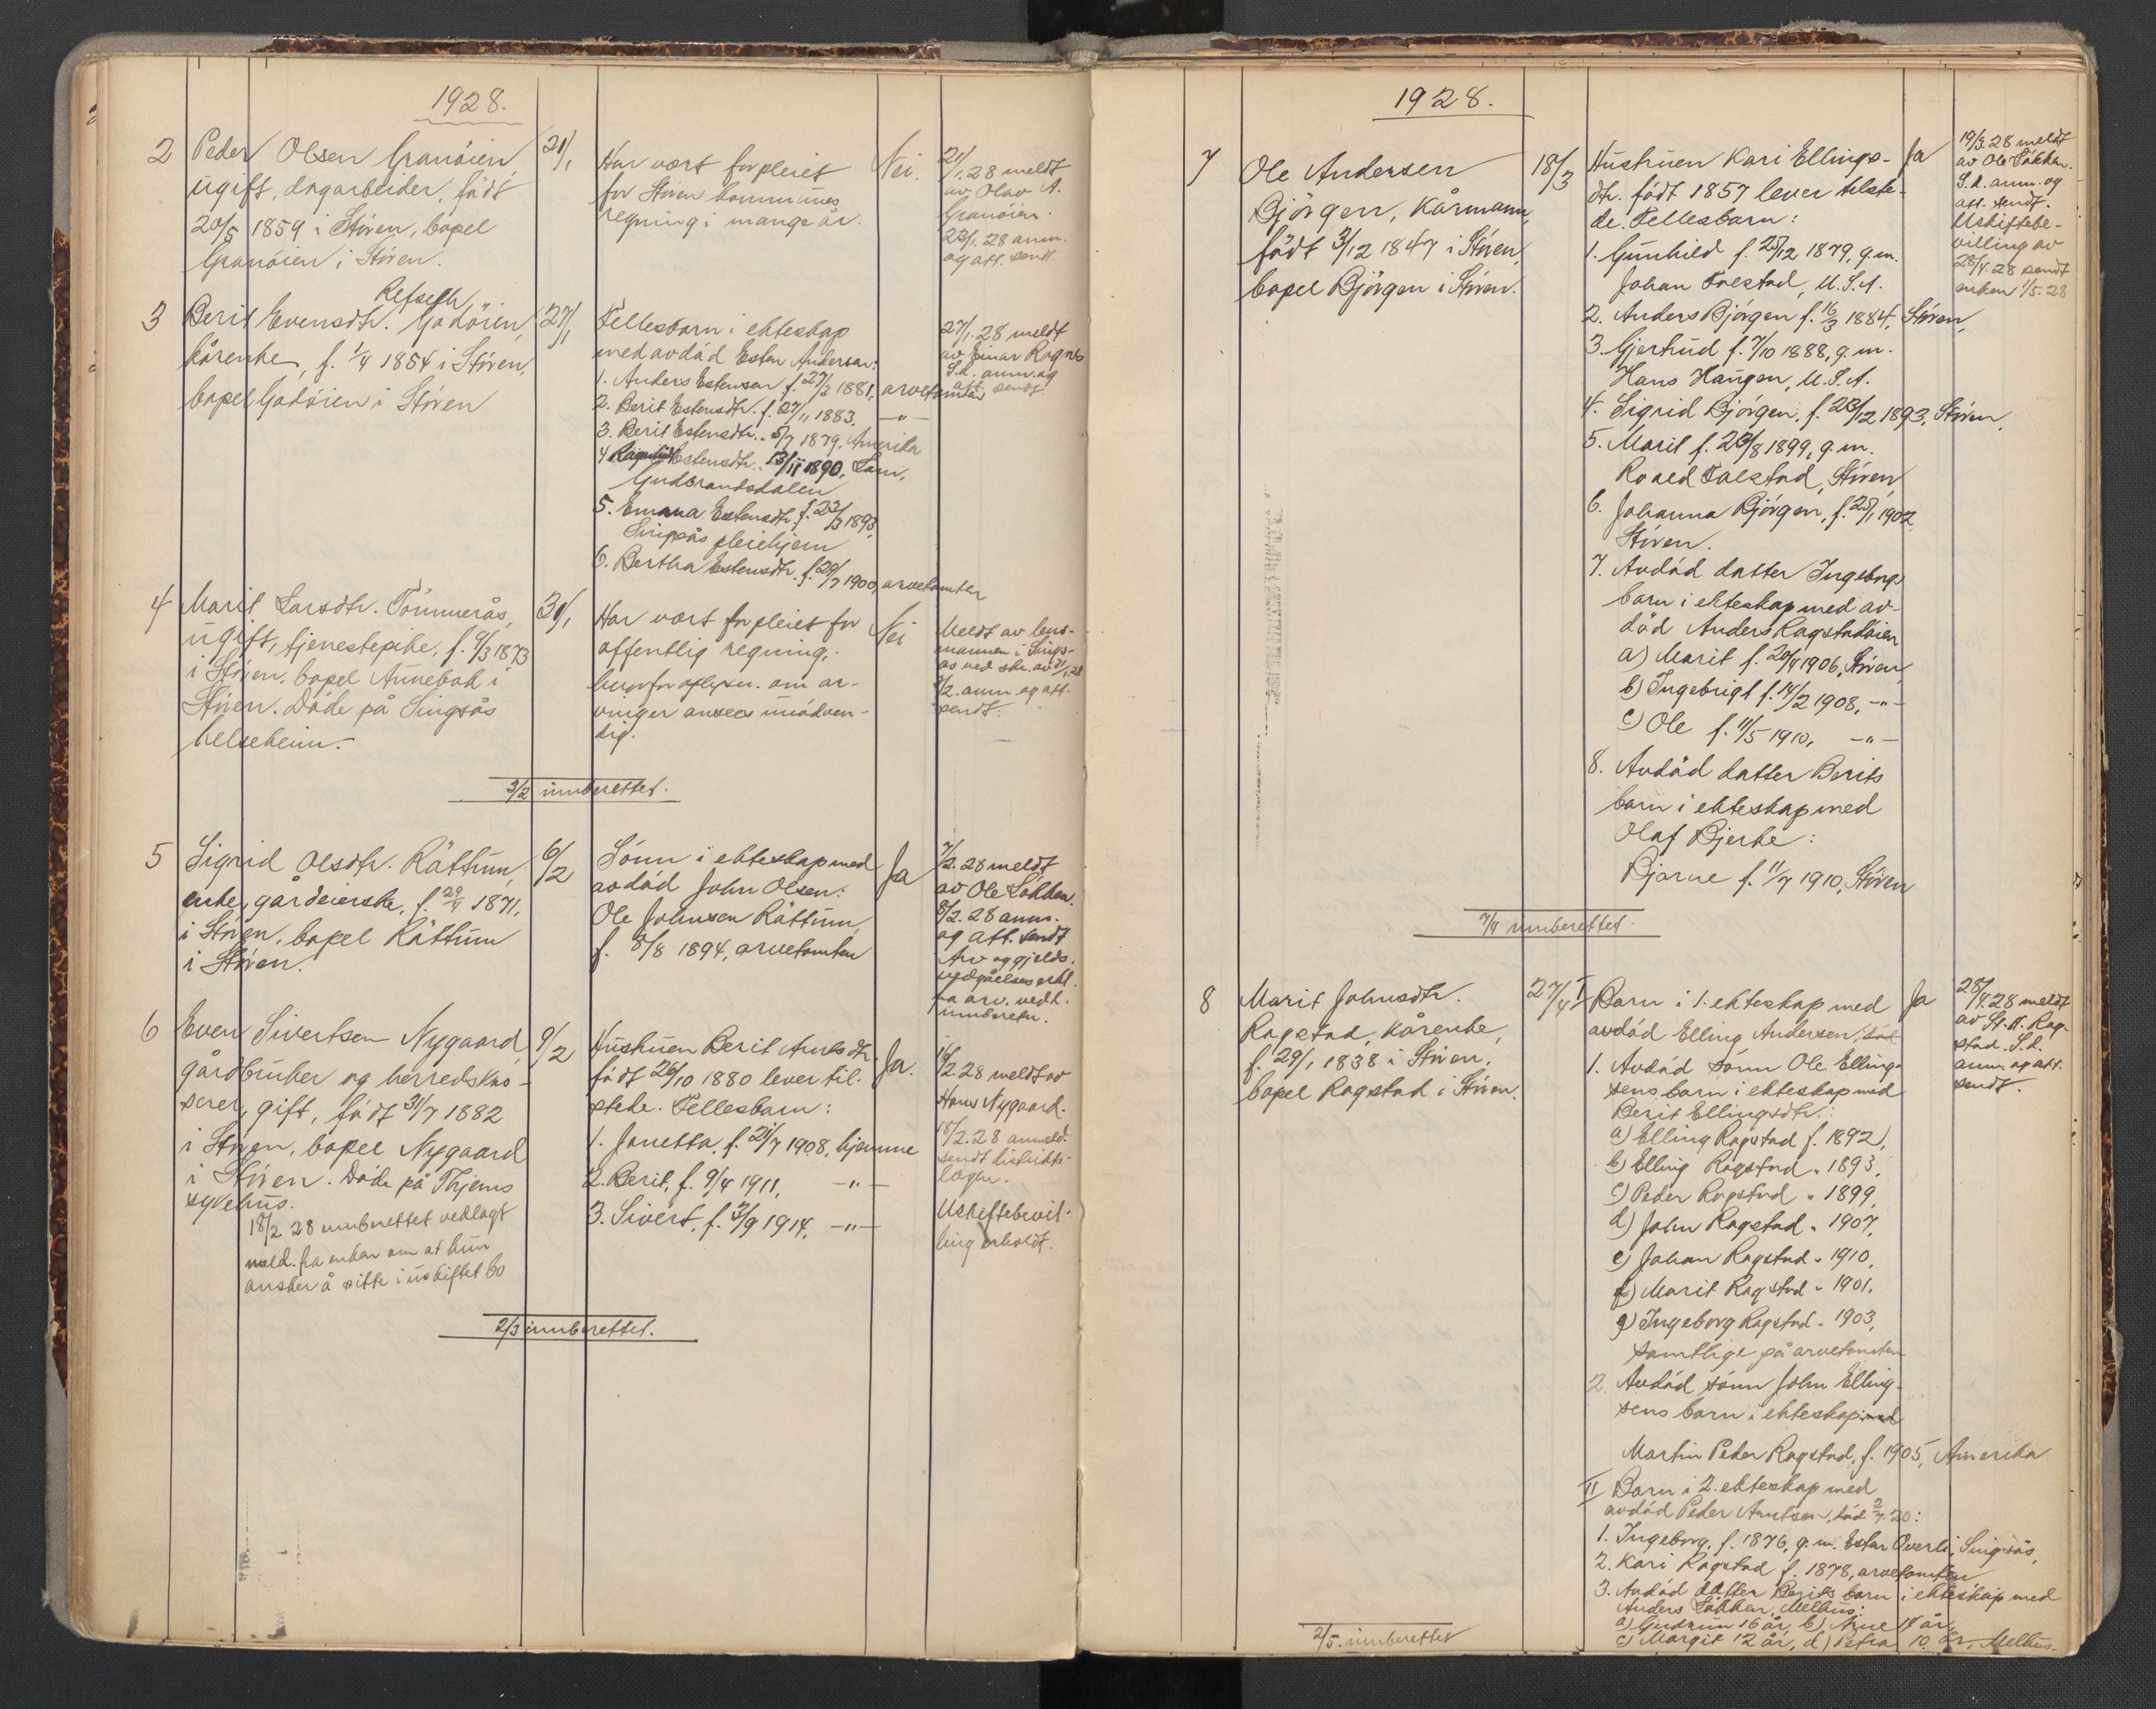 1928.
2 Peder Olsen Granöien
ugift, dagarbeider, födt
20/5 1859 i Stören, bopel
Granöien i Stören.
21/1
Har vært forpleiet
for Stören kommunes
regning i mange år.
Nei.
21/1.28 meldt
av Olav A.
Granöien.
23/1.28 anm.
og att. sendt.
Refseth,
3 Berit Evensdtr. Gadöien,
kårenke, f. 1/4 1854 i Stören,
bopel Gadöien i Stören
27/1
Fellesbarn i ekteskap
med avdöd Esten Andersen:
1. Anders Estensen f. 27/3 1881, arvetomten
2. Berit Estensdtr. f. 27/11 1883. -"-
3. Berit Estensdtr. " 5/7 1879, Amerika
4 Ragnhild Estensdtr. " 13/11 1890, Lom,
Gudbrandsdalen
5. Emma Estensdtr. f. 23/3 1893,
Singsås pleiehjem
6. Bertha Estensdtr. f. 29/7 1900, arvetomten
27/1.28 meldt
av Einar Rognes
S.d. anm. og
att. sendt.
4 Marit Larsdtr. Tömmerås,
ugift, tjenestepike, f. 6/3 1873
i Stören, bopel Annebak i
Stören. Döde på Singsås
helseheim.
30/1
Har vært forpleiet for
offentlig regning,
hvorfor oplysn. om ar-
vinger ansees unödven-
dig.
Nei
Meldt av lens-
mannen i Sings-
ås ved skr. av 31/1.28
3/2. anm. og att.
sendt.
3/2 innberettet.
5 Sigrid Olsdtr. Rättum,
enke, gårdeierske, f. 29/4 1871,
i Stören, bopel Rättum
i Stören.
6/2
Sönn i ekteskap med
avdöd John Olsen:
Ole Johnsen Rättum,
f. 8/8 1894, arvetomten
Ja
7/2.28 meldt
av Ole Lökken.
8/2.28 anm.
og att. sendt
Arv og gjelds.
vedgåelseserkl.
fra arv. vedl.
innberetn.
6 Even Sivertsen Nygaard,
gårdbruker og herredskas-
serer, gift, födt 31/7 1882
i Stören, bopel Nygaard
i Stören. Döde på Thjems
sykehus.
18/2 28 innberettet vedlagt
meld. fra enken om at hun
önsker å sitte i uskiftet bo
9/2
Hustruen Berit Arntsdtr.
födt 26/10 1880 lever til-
stede. Fellesbarn:
1. Janetta, f. 21/7 1908, hjemme
2. Berit, f. 9/4 1911, -"-
3. Sivert, f. 3/9 1914, -"-
Ja.
16/2.28 meldt av
Hans Nygaard.
18/2.28 anmeld.
sendt distrikts-
lægen.
Uskiftebevil-
ling erholdt.
2/3 innberettet.
1928.
7 Ole Andersen
Björgen, Kårmann,
födt 3/12 1847 i Stören,
bopel Björgen i Stören.
18/3
Hustruen Kari Ellings-
dtr. födt 1857 lever tilste-
de. Fellesbarn:
1. Gunhild f. 25/12 1879, g.m.
Johan Folstad, U.S.A.
2. Anders Björgen f. 16/3 1884, Stören,
3. Gjertrud f. 7/10 1888, g.m.
Hans Haugen, U.S.A.
4. Sigrid Björgen, f. 23/12 1893, Stören,
5. Marit f. 23/8 1899, g.m.
Roald Folstad, Stören,
6. Johanna Björgen, f. 25/1 1902,
Stören.
7. Avdöd datter Ingeborgs
barn i ekteskap med av-
död Anders Rogstadöien
a) Marit f. 20/4 1906, Stören,
b) Ingebrigt f. 14/2 1908, -"-
c) Ole f. 11/5 1910, -"-
8. Avdöd datter Berits
barn i ekteskap med
Olaf Bjerke:
Bjarne f. 11/7 1910, Stören
Ja
19/3.28 meldt
av Ole Lökken.
S.d. anm. og
att. sendt.
Uskiftebe-
villing av
28/4.28 sendt
enken 1/5.28
7/4 innberettet.
8 Marit Johnsdtr.
Rogstad, kårenke,
f. 29/1 1838 i Stören,
bopel Rogstad i Stören.
27/4
I Barn i 1. ekteskap med
avdöd Elling Andersen,
1. Avdöd sönn Ole Elling-
sens barn i ekteskap med
Berit Ellingsdtr.:
a) Elling Rogstad f. 1892,
b) Elling Rogstad " 1893,
c) Peder Rogstad " 1899,
d) John Rogstad " 1907,
e) Johan Rogstad " 1910,
f) Marit Rogstad " 1901,
g) Ingeborg Rogstad " 1903,
samtlige på arvetomten
2. Avdöd sönn John Elling-
sens barn i ekteskap med
Martin Peder Rogstad, f. 1905, Amerika
II Barn i 2. ekteskap med
avdöd Peder Arntsen, död 2/7 20:
1. Ingeborg, f. 1876, g.m. Esten Överli, Singsås,
2. Kari Rogstad f. 1878, arvetomten
3. Avdöd datter Berits barn i ekteskap med
Anders Lökken, Melhus:
a) Gudrun 16 år, b) Arne 14 år,
c) Margit 12 år, d) Petra 10 år, Melhus.
Ja
28/4.28 meldt
av St. A. Rog-
stad. S.d.
anm. og att.
sendt.
2/5. innberettet